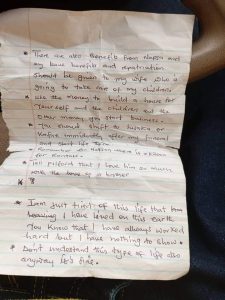 * There are also Benefits from Napsa and
my leave benefits and repatriation
should be given to my wife who is
going to take care of my children
* Use the money to build a house for
yourself and the children and the
other money you start business
* You should shift to Lusaka or
Kafue immediately after my funeral
and start life there
* Remember
for
* Tell that I love him so much
with the love of a brother
* I am just tired of this life that
I have loved on this earth
You know that I have always worked
hard but I have nothing to show
* Don't understand this type of life also
anyway it's fine.